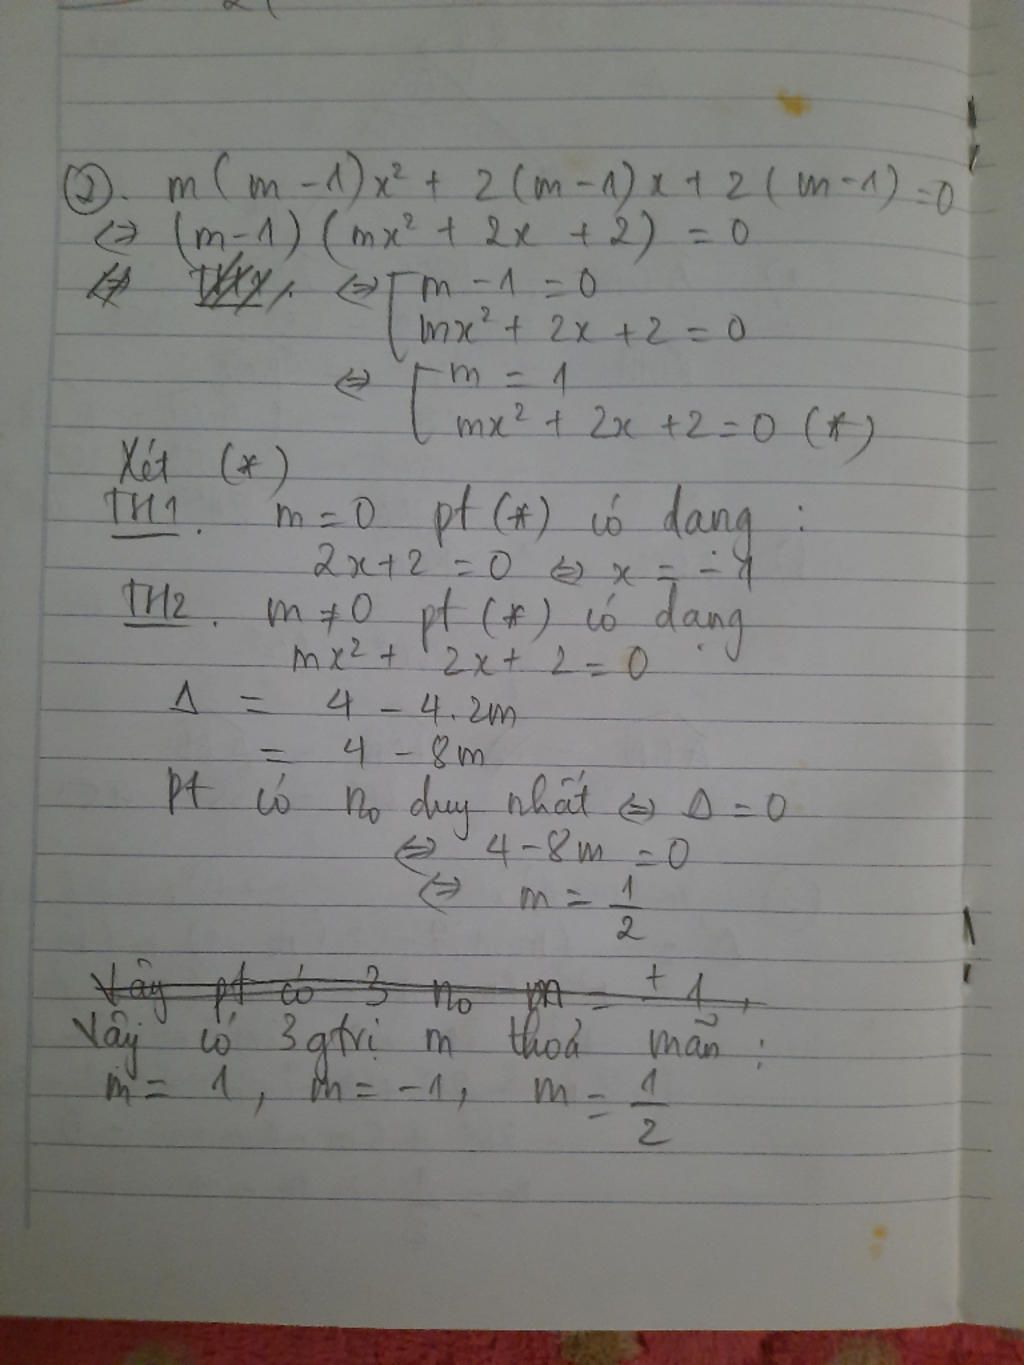 ②. m(m-1)x² + 2(m-1)x + 2(m-1) = 0
⇔ (m-1)(mx² + 2x + 2) = 0
⇔ [ m - 1 = 0
mx² + 2x + 2 = 0
⇔ [ m = 1
mx² + 2x + 2 = 0 (*)
Xét (*)
TH1. m = 0 pt (*) có dạng :
2x+2 = 0 ⇔ x = -1
TH2. m ≠ 0 pt (*) có dạng
mx² + 2x + 2 = 0
Δ = 4 - 4.2m
= 4 - 8m
pt có n₀ duy nhất ⇔ Δ = 0
⇔ 4-8m = 0
⇔ m = 1/2
Vậy pt có 3 n₀ m = ±1,
Vậy có 3 gtrị m thoả mãn :
m = 1, m = -1, m = 1/2